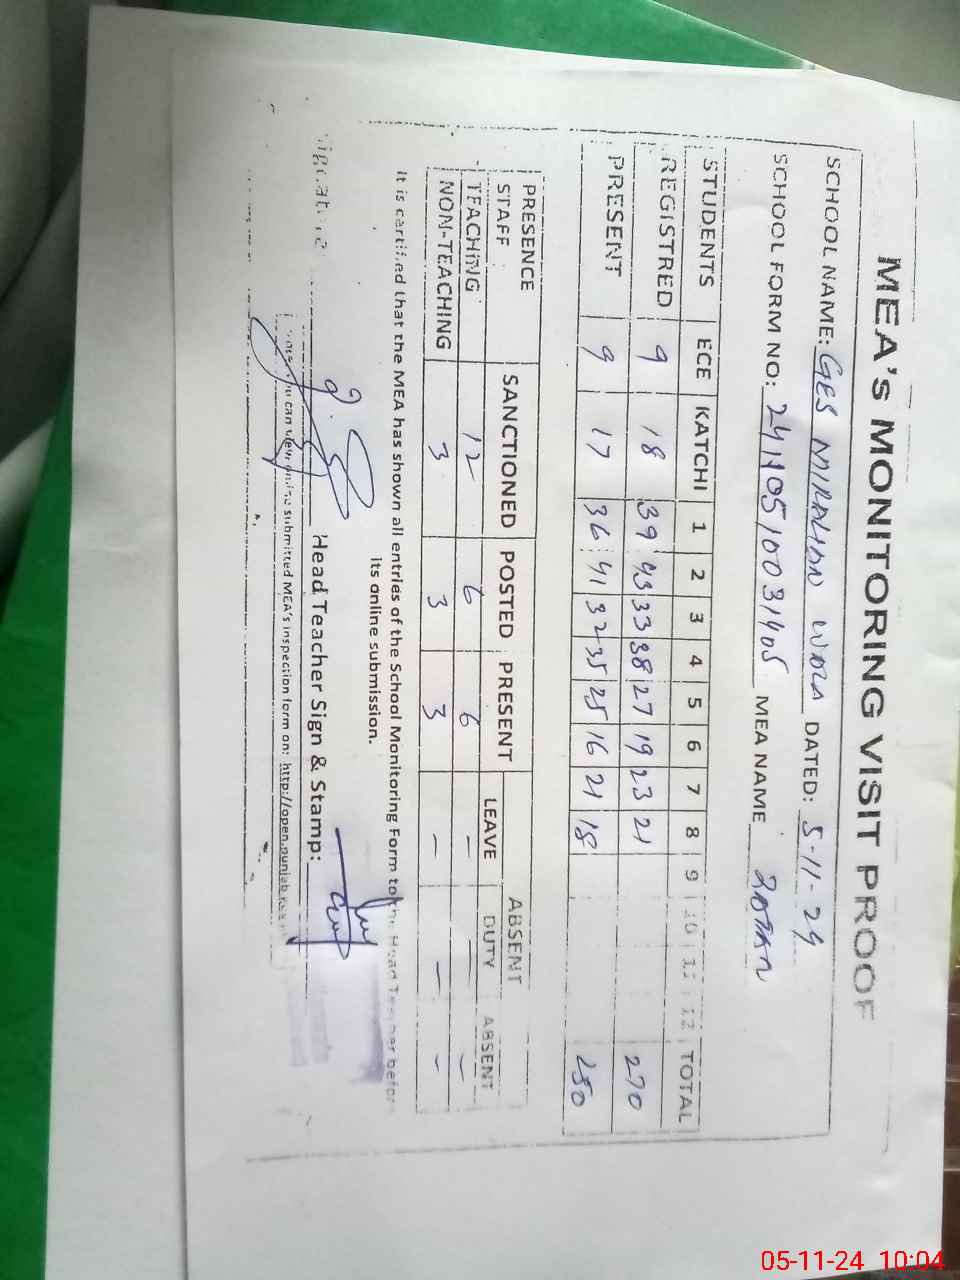 MEA's MONITORING VISIT PROOF
SCHOOL NAME: GES DATED: 5-11-24
SCHOOL FORM NO: MEA NAME
STUDENTS ECE KATCHI 1 2 3 4 5 6 7 8 9 10 11 12 TOTAL
REGISTRED 9 18 39 43 33 38 27 19 23 21 270
PRESENT 9 17 36 41 32 35 25 16 21 18 250
PRESENCE SANCTIONED POSTED PRESENT ABSENT
STAFF LEAVE DUTY ABSENT
TEACHING 12 6 6 - - -
NON-TEACHING 3 3 3 - - -
It is certified that the MEA has shown all entries of the School Monitoring Form to the Head Teacher before
its online submission.
Signature Head Teacher Sign & Stamp:
you can view online submitted MEA's inspection form on: http://open.punjab
05-11-24 10:04